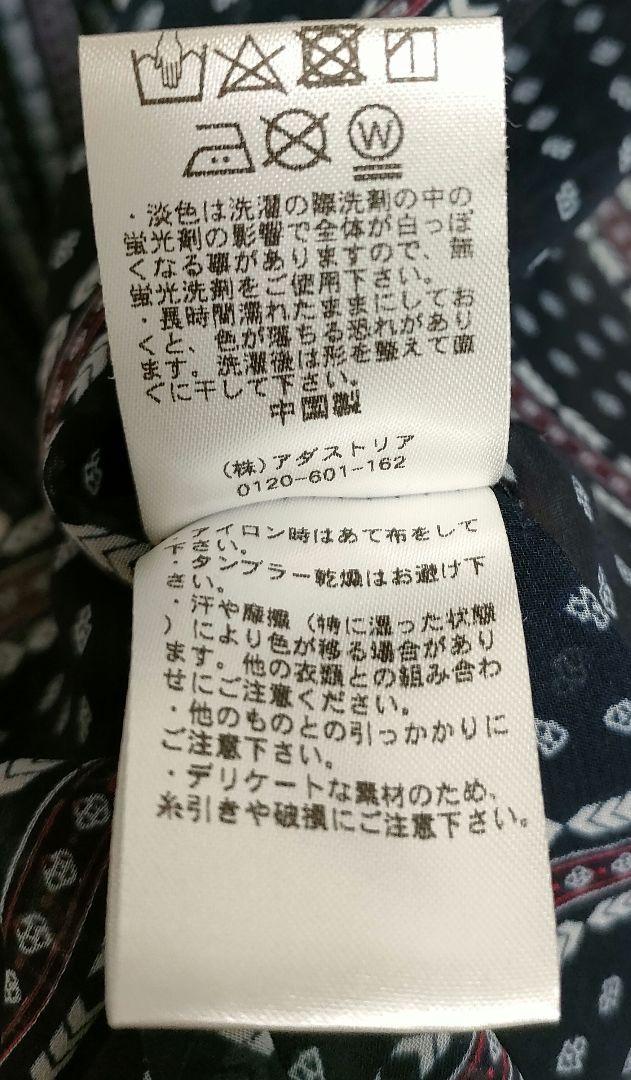 W
・淡色は洗濯の際洗剤の中の
蛍光剤の影響で全体が白っぽ
くなる事がありますので、無
蛍光洗剤をご使用下さい。
・長時間濡れたままにしてお
くと、色が落ちる恐れがあり
ます。洗濯後は形を整えて直
ぐに干して下さい。
中国製
(株)アダストリア
0120-601-162
・アイロン時はあて布をして
下さい。
・タンブラー乾燥はお避け下
さい。
・汗や摩擦(特に湿った状態
)により色が移る場合があり
ます。他の衣類との組み合わ
せにご注意ください。
・他のものとの引っかかりに
ご注意下さい。
・デリケートな素材のため、
糸引きや破損にご注意下さい。